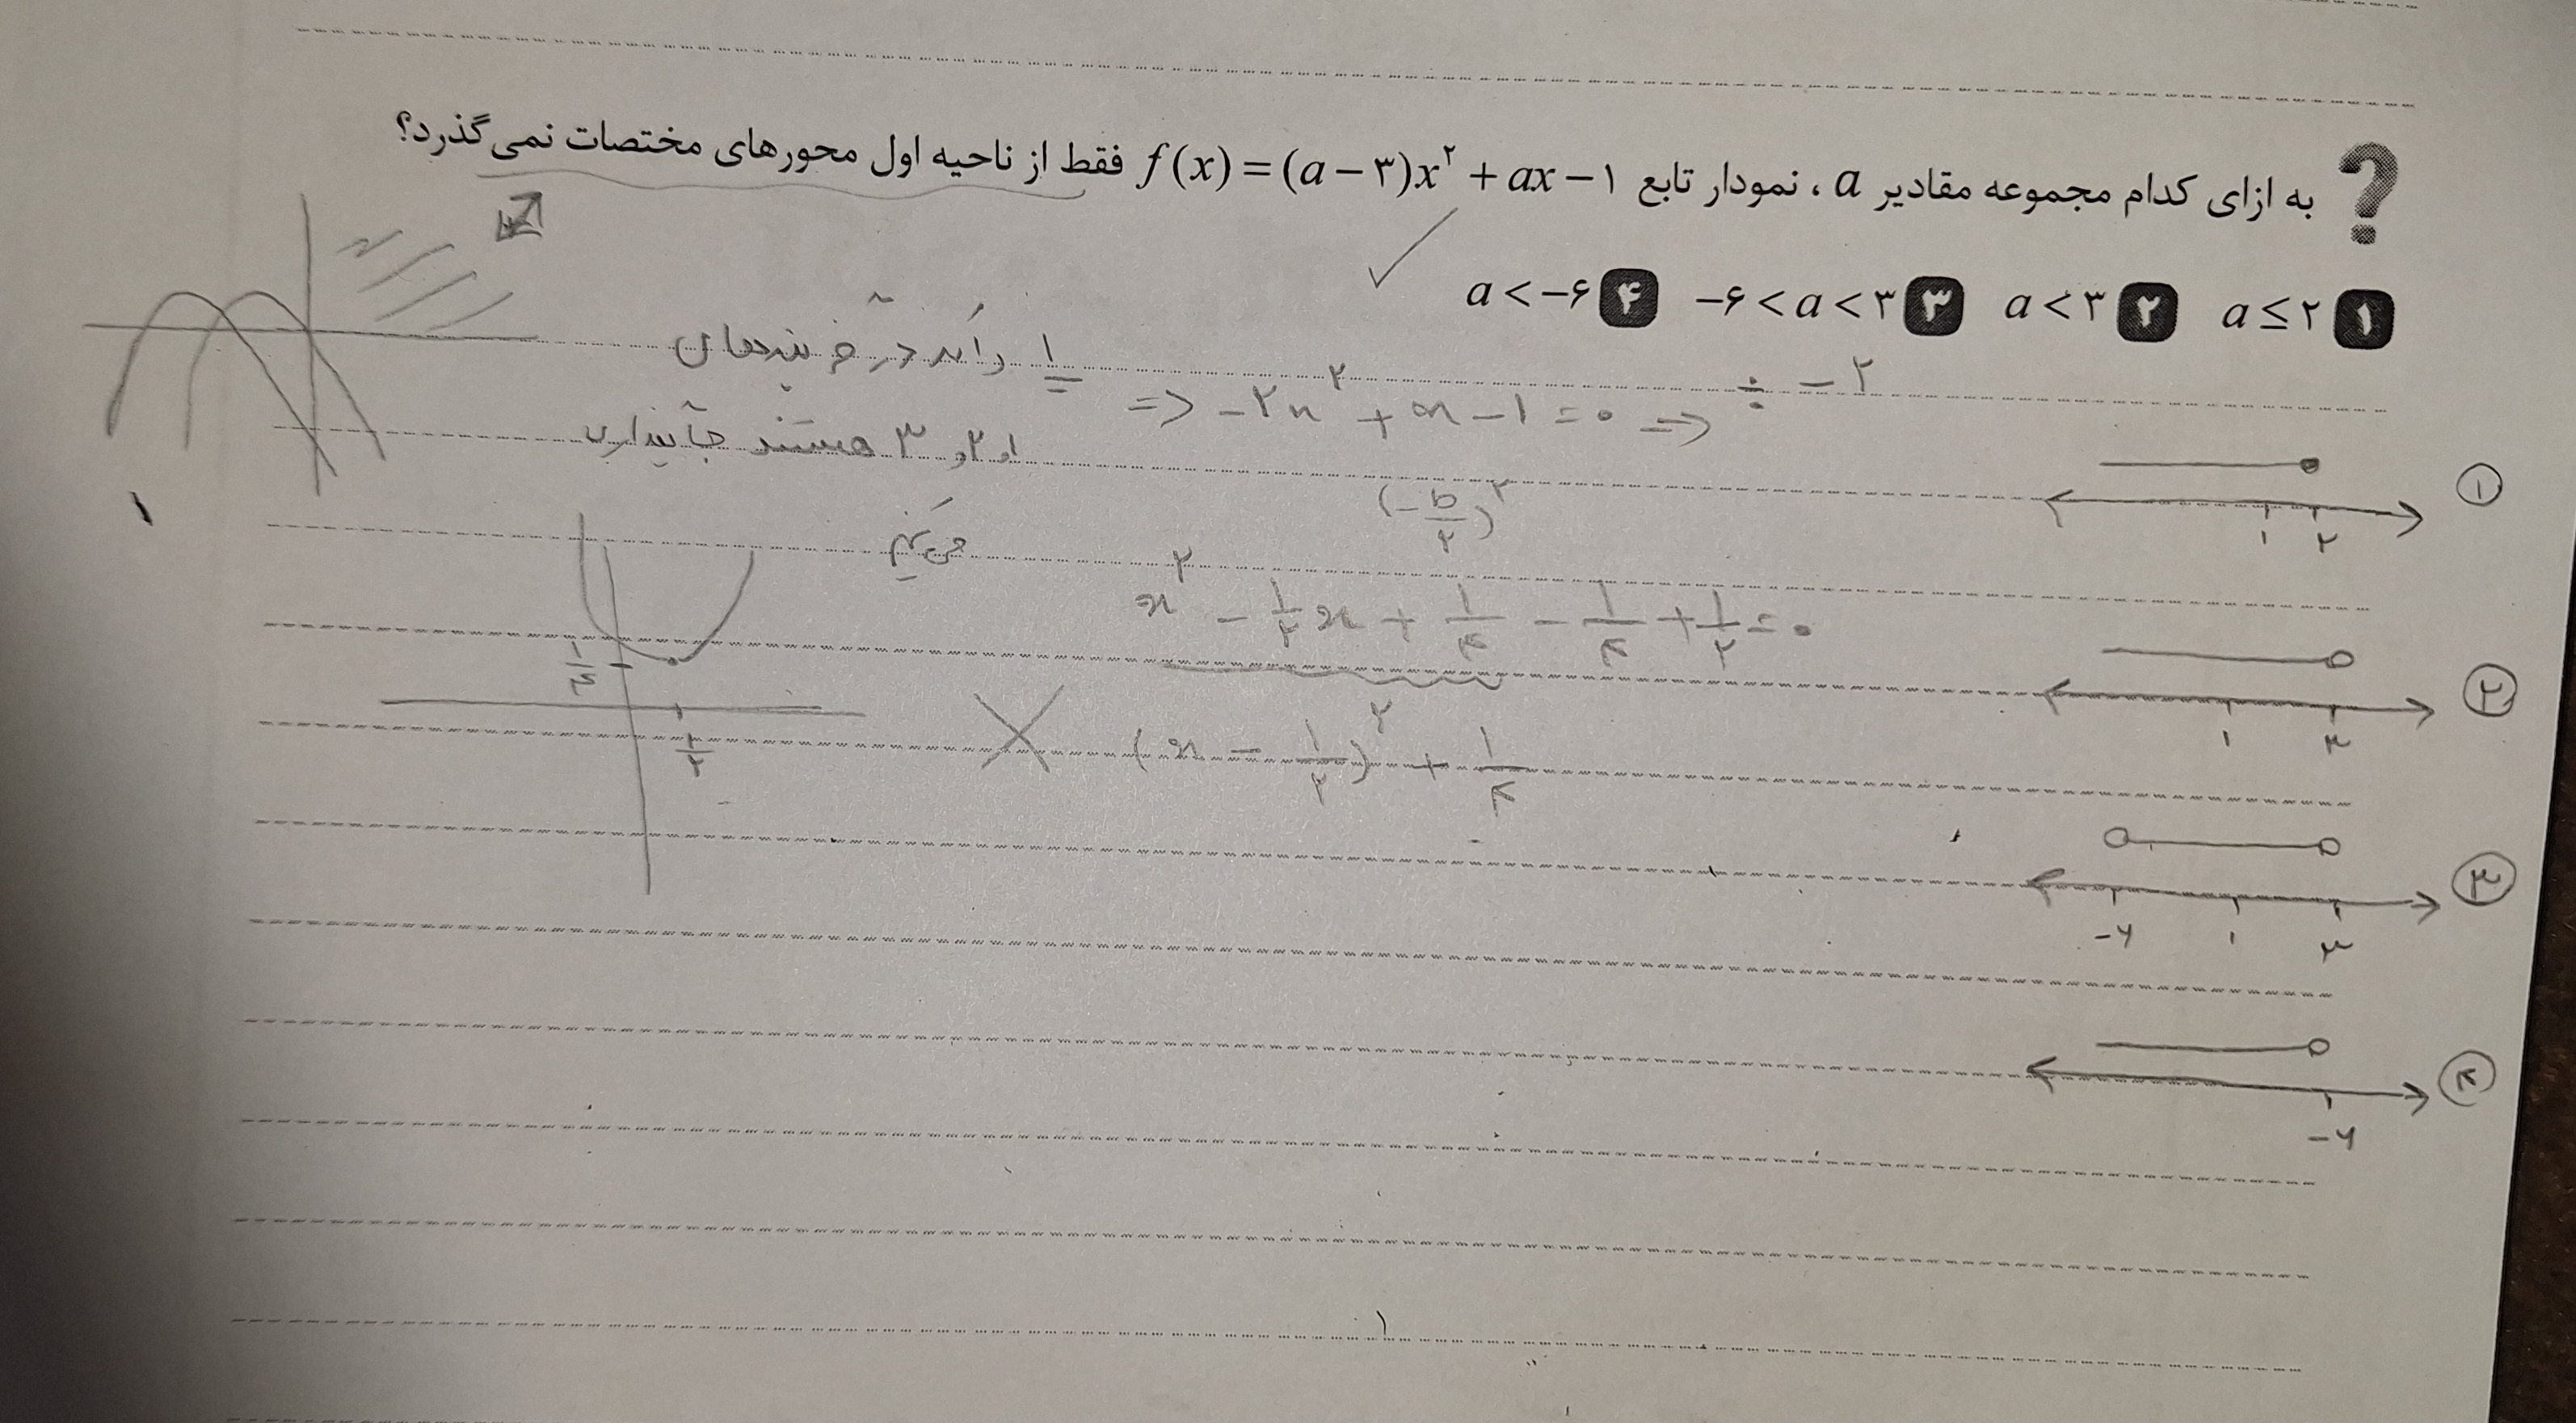 به ازای کدام مجموعه مقادیر a ، نمودار تابع f(x) = (a-۳)x^۲ + ax - ۱ فقط از ناحیه اول محورهای مختصات نمی‌گذرد؟
۱ a ≤ ۲ ۲ a < ۳ ۳ -۶ < a < ۳ ۴ a < -۶
۱ را که در گزینه‌های
۱ و ۲ و ۳ هستند جایگذاری
می‌کنیم
=> -۲x^۲ + x - ۱ = ۰ => ÷ -۲
(-b/۲)^۲
x^۲ - ۱/۲ x + ۱/۴ - ۱/۴ + ۱/۲ = ۰
(x - ۱/۲)^۲ + ۱/۴
۱/۴
۱/۲
۱
۱ ۲
۲
۱ ۳
۳
-۶ ۱ ۳
۴
-۶